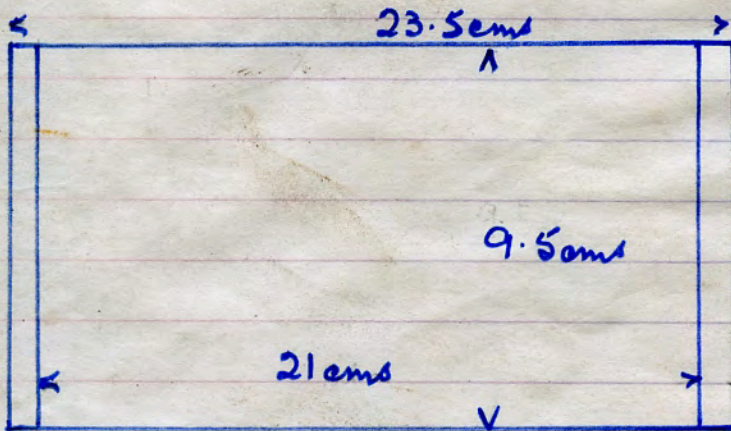 23.5cms
9.5cms
21cms